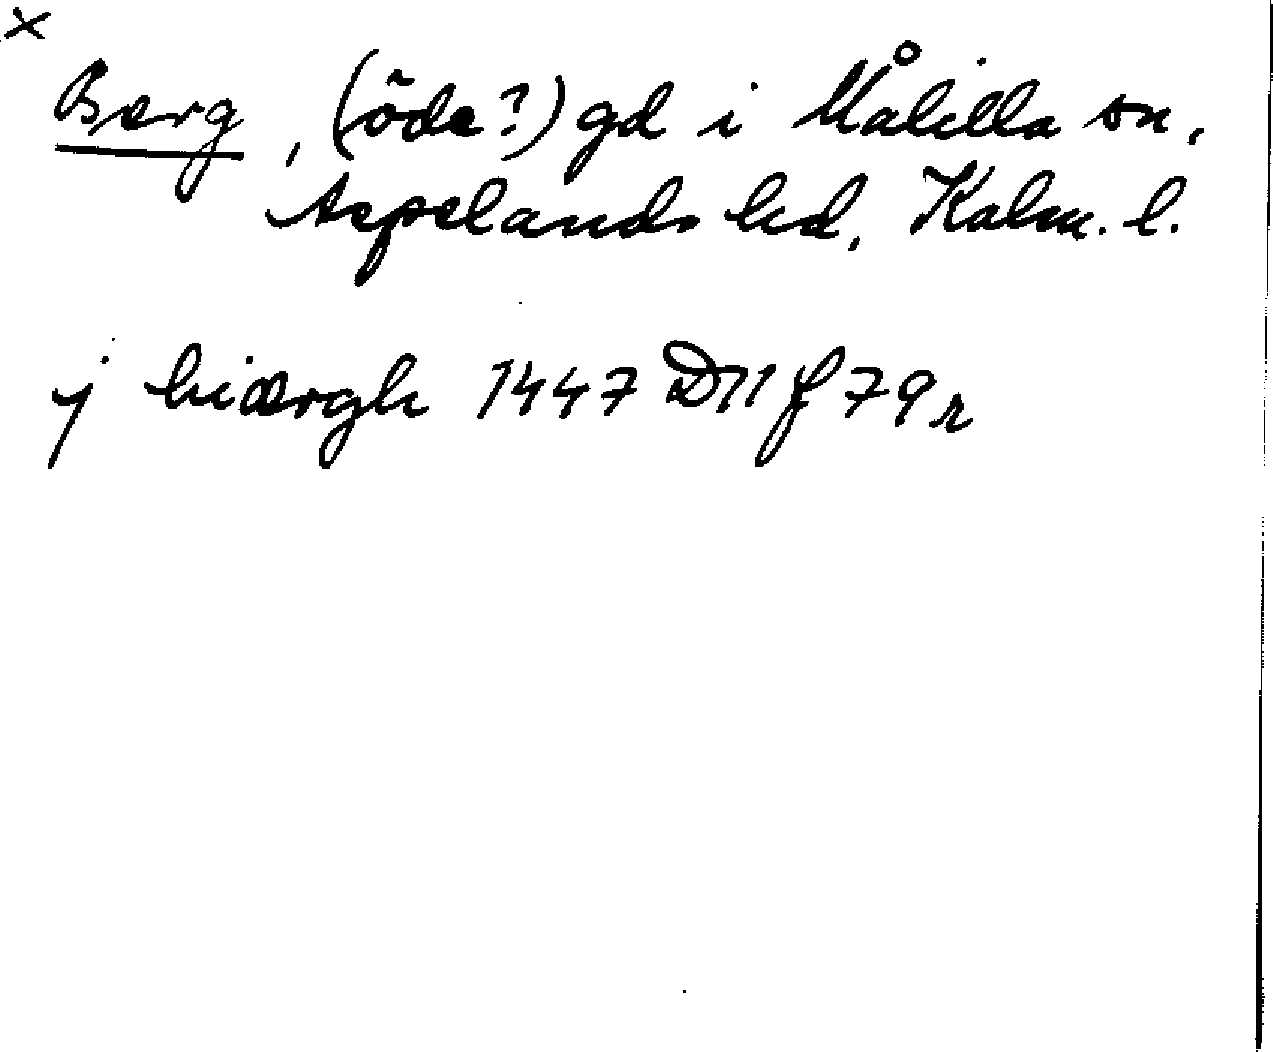 x
Berg, (öde?) gd i Målilla sn,
Aspelands hd, Kalm. l.
j biærgh 1447 D11 f 79r